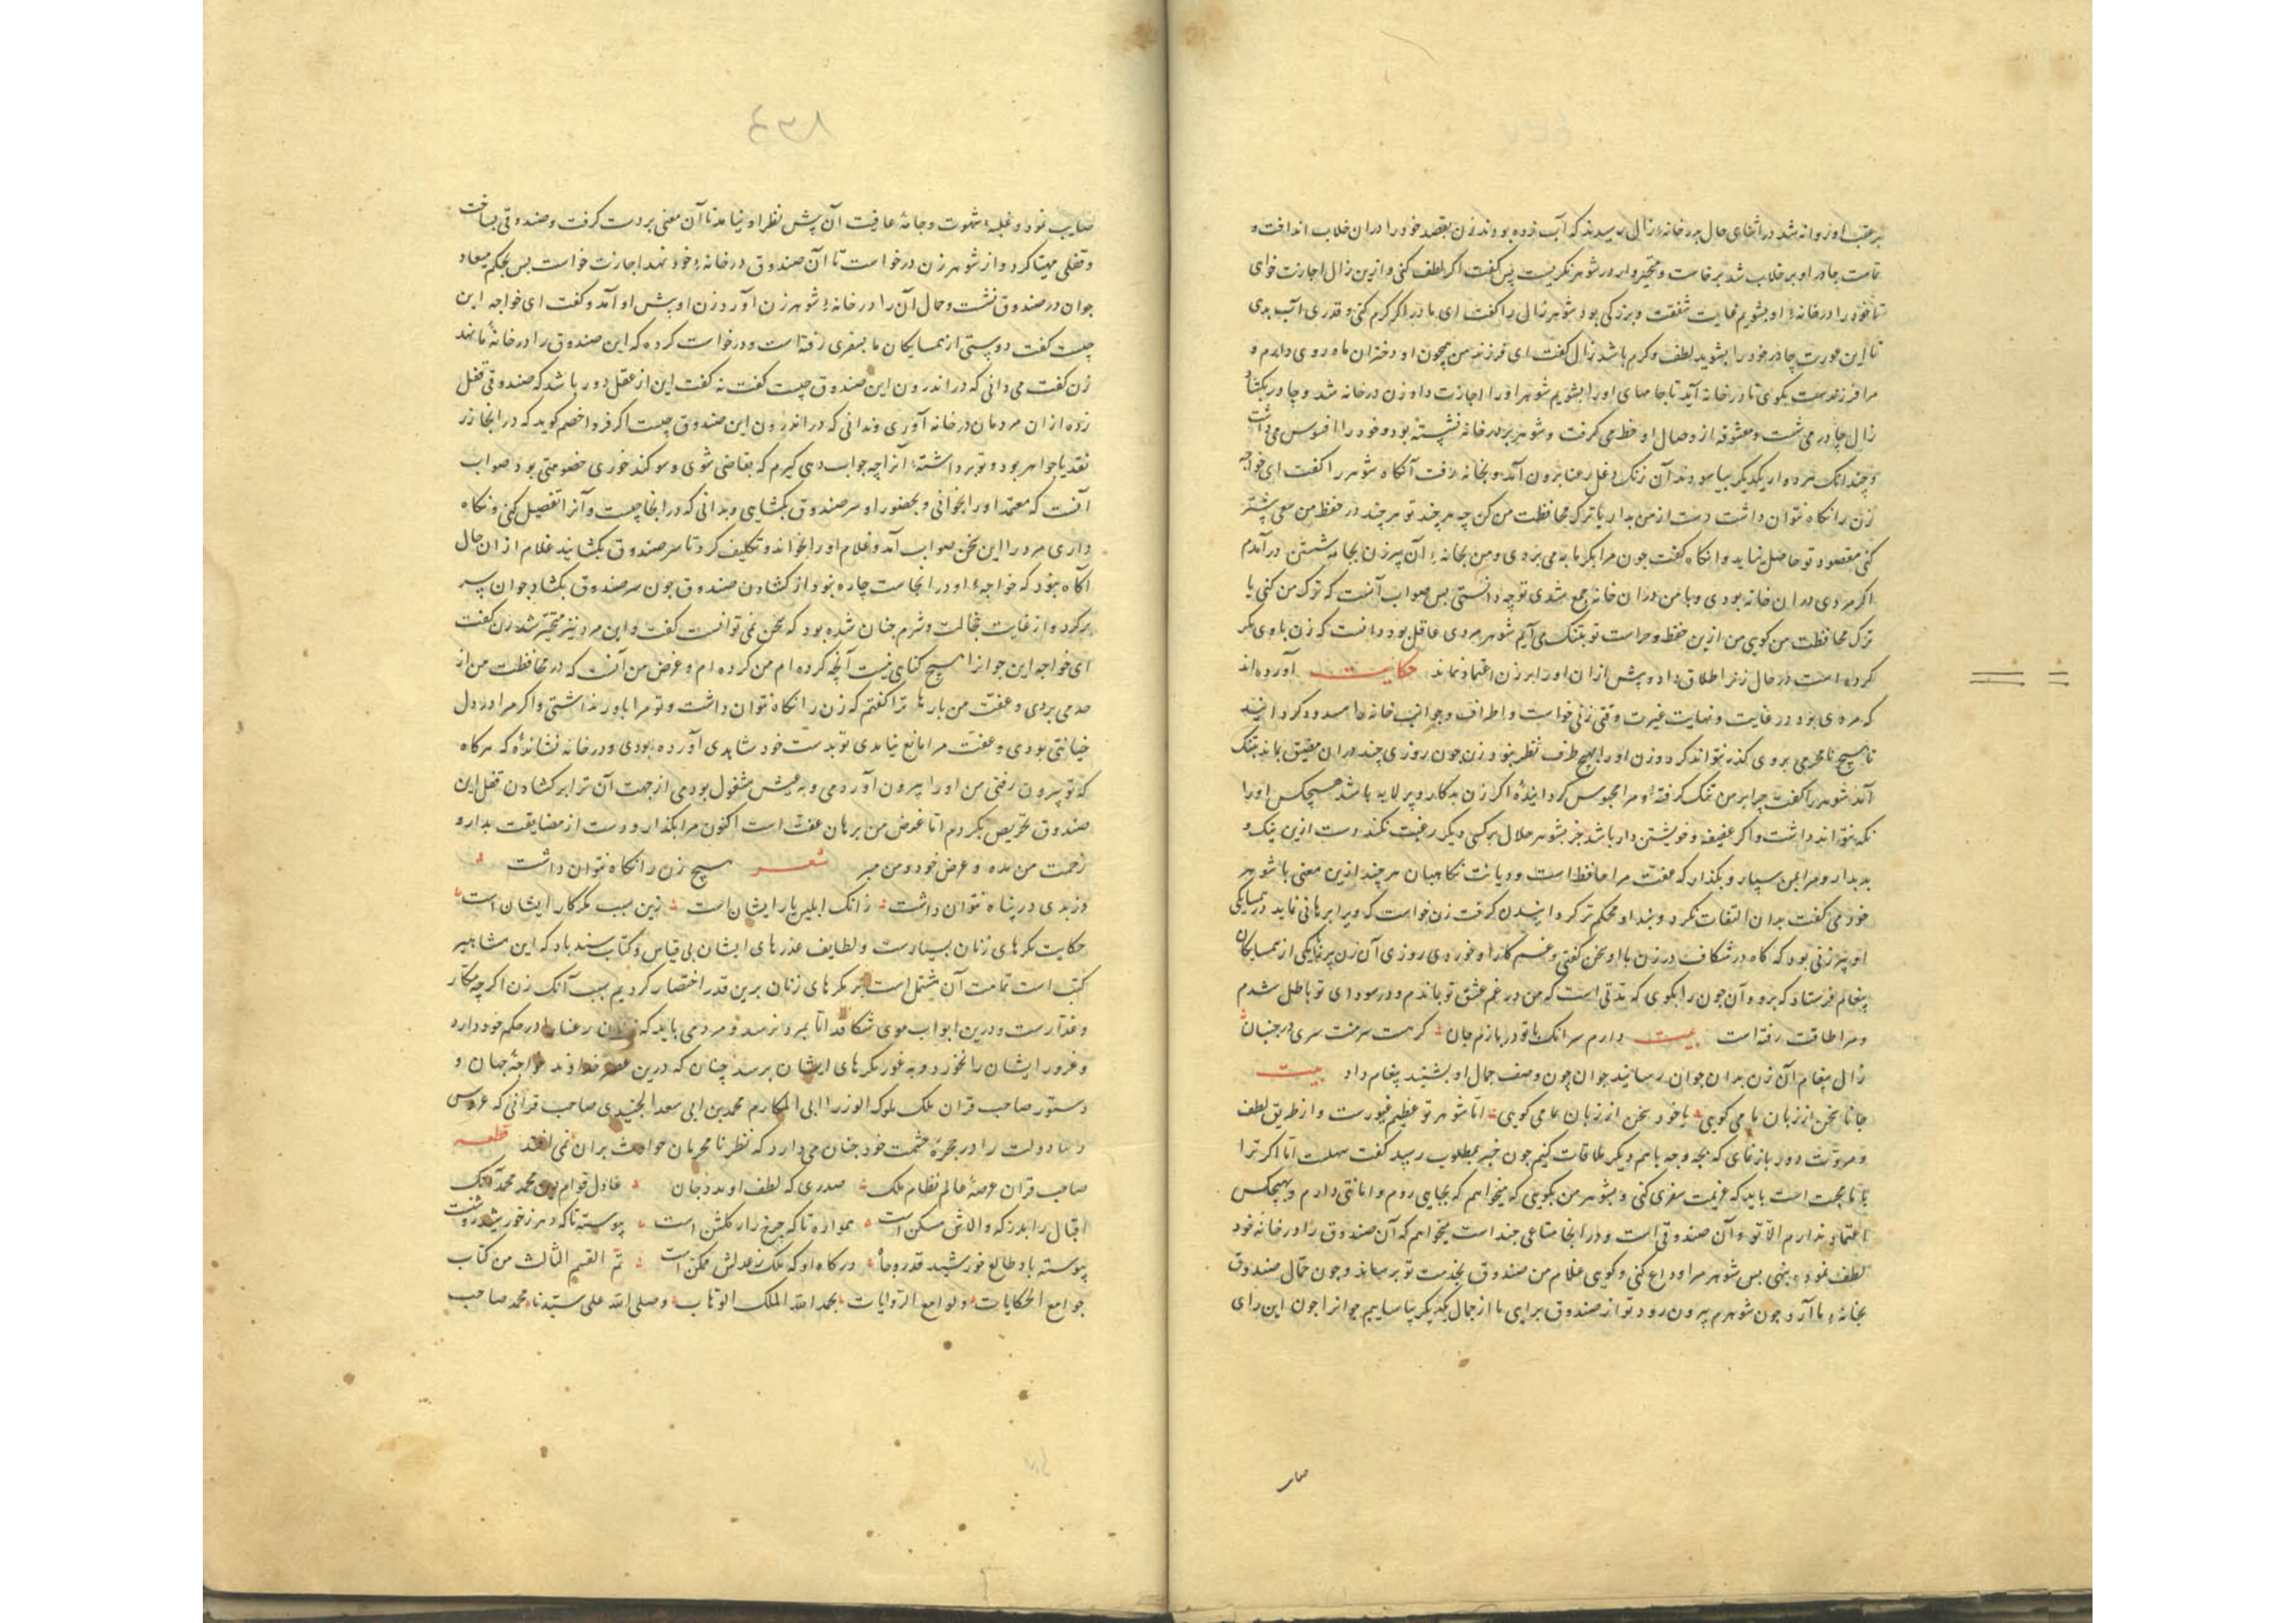 بر عقب او روانه شد در اثنای حال بدر خانهٔ زال رسیدند که آب زده بودند زن بقصد خود را در ان خلاب انداخت و
تمامت چادر او بر خلاب شد برخاست و متحیروار در شوهر نگریست پس گفت اگر لطف کنی و ازین زال اجازت خواهی
تا خود را در خانهٔ او بشویم غایت شفقت و بزرگی بود شوهر زال را گفت ای مادر اگر کرم کنی و قدری آب بدهی
تا این عورت چادر خود را بشوید لطف و کرم باشد زال گفت ای فرزند من همچون او دختران ماه روی دارم و
مرا فرزندست بکوی تا در خانه آید تا جامهای او را بشویم شوهر او را اجازت داد و زن در خانه شد و چادر بکشاد
زال چادر می شست و معشوقه از وصال او حظ می گرفت و شوهر بر در خانه نشسته بود و خود را افسوس می داشت
و چندانک هر دو از یکدیگر بیاسودند آن زنک دغل رعنا برون آمد و بخانه رفت آنگاه شوهر را گفت ای خواجه
زن را نگاه نتوان داشت دست از من بدار یا ترک محافظت من کن چه هر چند تو هر چند در حفظ من سعی بیشتر
کنی مقصود تو حاصل نیاید و آنگاه گفت چون مرا بگرمابه می بردی و من بخانهٔ آن پیرزن بجامه شستن درآمدم
اگر مردی در ان خانه بودی و با من در ان خانه جمع شدی تو چه دانستی پس صواب آنست که ترک من کنی یا
ترک محافظت من گویی من ازین حفظ و حراست تو بتنگ می آیم شوهر مردی عاقل بود دانست که زن با وی مکر
کرده است در حال زن را طلاق داد و پیش از ان او را بر زن اعتماد نماند حکایت آورده اند
که مردی بود در غایت و نهایت غیرت وقتی زنی خواست و اطراف و جوانب خانه را مسدود گردانید
تا هیچ نامحرمی بروی گذر نتواند کرد و زن او را هیچ طرف نظر نبود زن چون روزی چند در ان مضیق بماند بتنگ
آمد شوهر را گفت چرا بر من تنگ گرفتهٔ و مرا محبوس گردانیدهٔ اگر زن بدکار و پرلایه باشد هیچکس او را
نگه نتواند داشت و اگر عفیفه و خویشتن دار باشد جز بشوهر حلال بر کسی دیگر رغبت نکند دست ازین نیک و
بد بدار و مرا بمن سپار و بگذار که عفت مرا حافظ است و دیانت نگاهبان هر چند ازین معنی با شوهر
خود می گفت بدان التفات نکرد و بند او محکم تر گردانیدن گرفت زن خواست که ویرا برهانی نماید در همسایگی
او پیرزنی بود که گاه گاه در شکاف در زن با او سخن گفتی و غم کار او خوردی روزی آن زن پیر را بیکی از همسایگان
پیغام فرستاد که برو و آن جوان را بکوی که مدتی است که من در غم عشق تو باندم و در سودای تو باطل شدم
و مرا طاقت رفته است بیت دارم سر انک با تو در بازم جان گر هست سر منت سری در جنبان
زال پیغام آن زن بدان جوان رسانید جوان چون وصف جمال او بشنید پیغام داد بیت
جانا سخن از زبان ما می گویی یا خود سخن از زبان ما می گویی اما شوهر تو عظیم غیورست و از طریق لطف
و مروت دور باز نمای که بچه وجه با هم دیگر ملاقات کنیم چون خبر بمطلوب رسید گفت سهلست اما اگر ترا
با ما محبت است باید که عزیمت سفری کنی و بشوهر من بگویی که میخواهم که بجایی روم و امانتی دارم و بهیچکس
اعتماد ندارم الا تو و آن صندوقی است و در انجا متاعی چند است میخواهم که آن صندوق را در خانه خود
لطف نموده بنهی پس شوهر مرا وداع کنی و گویی غلام من صندوق بخدمت تو برساند و چون حمال صندوق
بخانهٔ ما آرد چون شوهرم بیرون رود تو از صندوق برایی ما از جمال یکدیگر بیاساییم جوانرا چون این رای
صایب
صایب نمود و غلبهٔ شهوت و جامهٔ عافیت آن پیش نظر او نیامد تا آن معنی بر دست گرفت و صندوقی بساخت
و قفلی مهیا کرد و از شوهر زن درخواست تا آن صندوق در خانهٔ خود نهد اجازت خواست پس بحکم میعاد
جوان در صندوق نشست و حمال آن را در خانهٔ شوهر زن آورد زن او پیش او آمد و گفت ای خواجه این
چیست گفت دوستی از همسایگان ما بسفری رفته است و درخواست کرده که این صندوق را در خانهٔ ما نهد
زن گفت می دانی که در اندرون این صندوق چیست گفت نه گفت این از عقل دور باشد که صندوقی قفل
زده از ان مردمان در خانه آوری و ندانی که در اندرون این صندوق چیست اگر فردا خصم گوید که در انجا زر
نقد یا جواهر بود و تو برداشتهٔ آنرا چه جواب دهی گیرم که بقاضی شوی و سوگند خوری خصومتی بود صواب
آنست که معتمد او را بخوانی و بحضور او سر صندوق بگشایی و بدانی که در انجا چیست و آنرا تفصیل کنی و نگاه
داری مرد را این سخن صواب آمد و غلام او را بخواند و تکلیف کرد تا سر صندوق بگشایند غلام از ان حال
آگاه بود که خواجهٔ او در انجاست چاره نبود از گشادن صندوق چون سر صندوق بگشاد جوان سر
برکرد و از غایت خجالت و شرم چنان شده بود که سخن نمی توانست گفت و این مرد نیز متحیر شد زن گفت
ای خواجه این جوانرا هیچ گناهی نیست آنچه کرده ام من کرده ام و غرض من آنست که در محافظت من از
حد می بردی و عفت من بارها ترا گفتم که زن را نگاه نتوان داشت و تو مرا باور نداشتی و اگر مرا در دل
خیانتی بودی و عفت مرا مانع نیامدی تو بدست خود شاهدی آورده بودی و در خانه نشانده که هرگاه
که تو بیرون رفتی من او را بیرون آوردمی و به عیش مشغول بودمی از جهت آن ترا بر گشادن قفل این
صندوق تحریص کردم اما غرض من برهان عفت است اکنون مرا بگذار و دست از مضایقت بدار و
زحمت من مده و عرض خود و من مبر شعر هیچ زن را نگاه نتوان داشت
وز بدی در پناه نتوان داشت زانک ابلیس یار ایشان است زین سبب مکر کار ایشان است
حکایت مکرهای زنان بسیارست و لطایف عذرهای ایشان بی قیاس و کتاب سندباد که این مشاهیر
کتب است تمامت آن مشتمل است بر مکرهای زنان برین قدر اختصار کردیم سبب آنک زن اگر چه مکار
و غدارست و درین ابواب موی شکافد اما بمرد نرسد و مرد می باید که زنان رعنا را در حکم خود دارد
و غرور ایشان را نخورد و به غور مکرهای ایشان برسد چنان که درین عصر خداوند خواجهٔ جهان و
دستور صاحب قران ملک ملوک الوزرا ابی المکارم محمد بن ابی سعد الجنیدی صاحب قرانی که عروس
دولت را در حجرهٔ حشمت خود چنان می دارد که نظر نامحرمان حوادث بران نمی افتد قطعه
صاحب قران عرصهٔ عالم نظام ملک صدری که لطف او مدد جان عادل قوام دین محمد محمد آنک
اقبال را بدرگه والاش مسکن است همواره تا که چرخ زار گلشن است پیوسته تا که دهر ز خورشید روشنست
پیوسته باد طالع خورشید قدر و جاه درگاه او که ملک ز عدلش ممکن است تم القسم الثالث من کتاب
جوامع الحکایات و لوامع الروایات بحمد الله الملک الوهاب وصلی الله علی سیدنا محمد صاحب